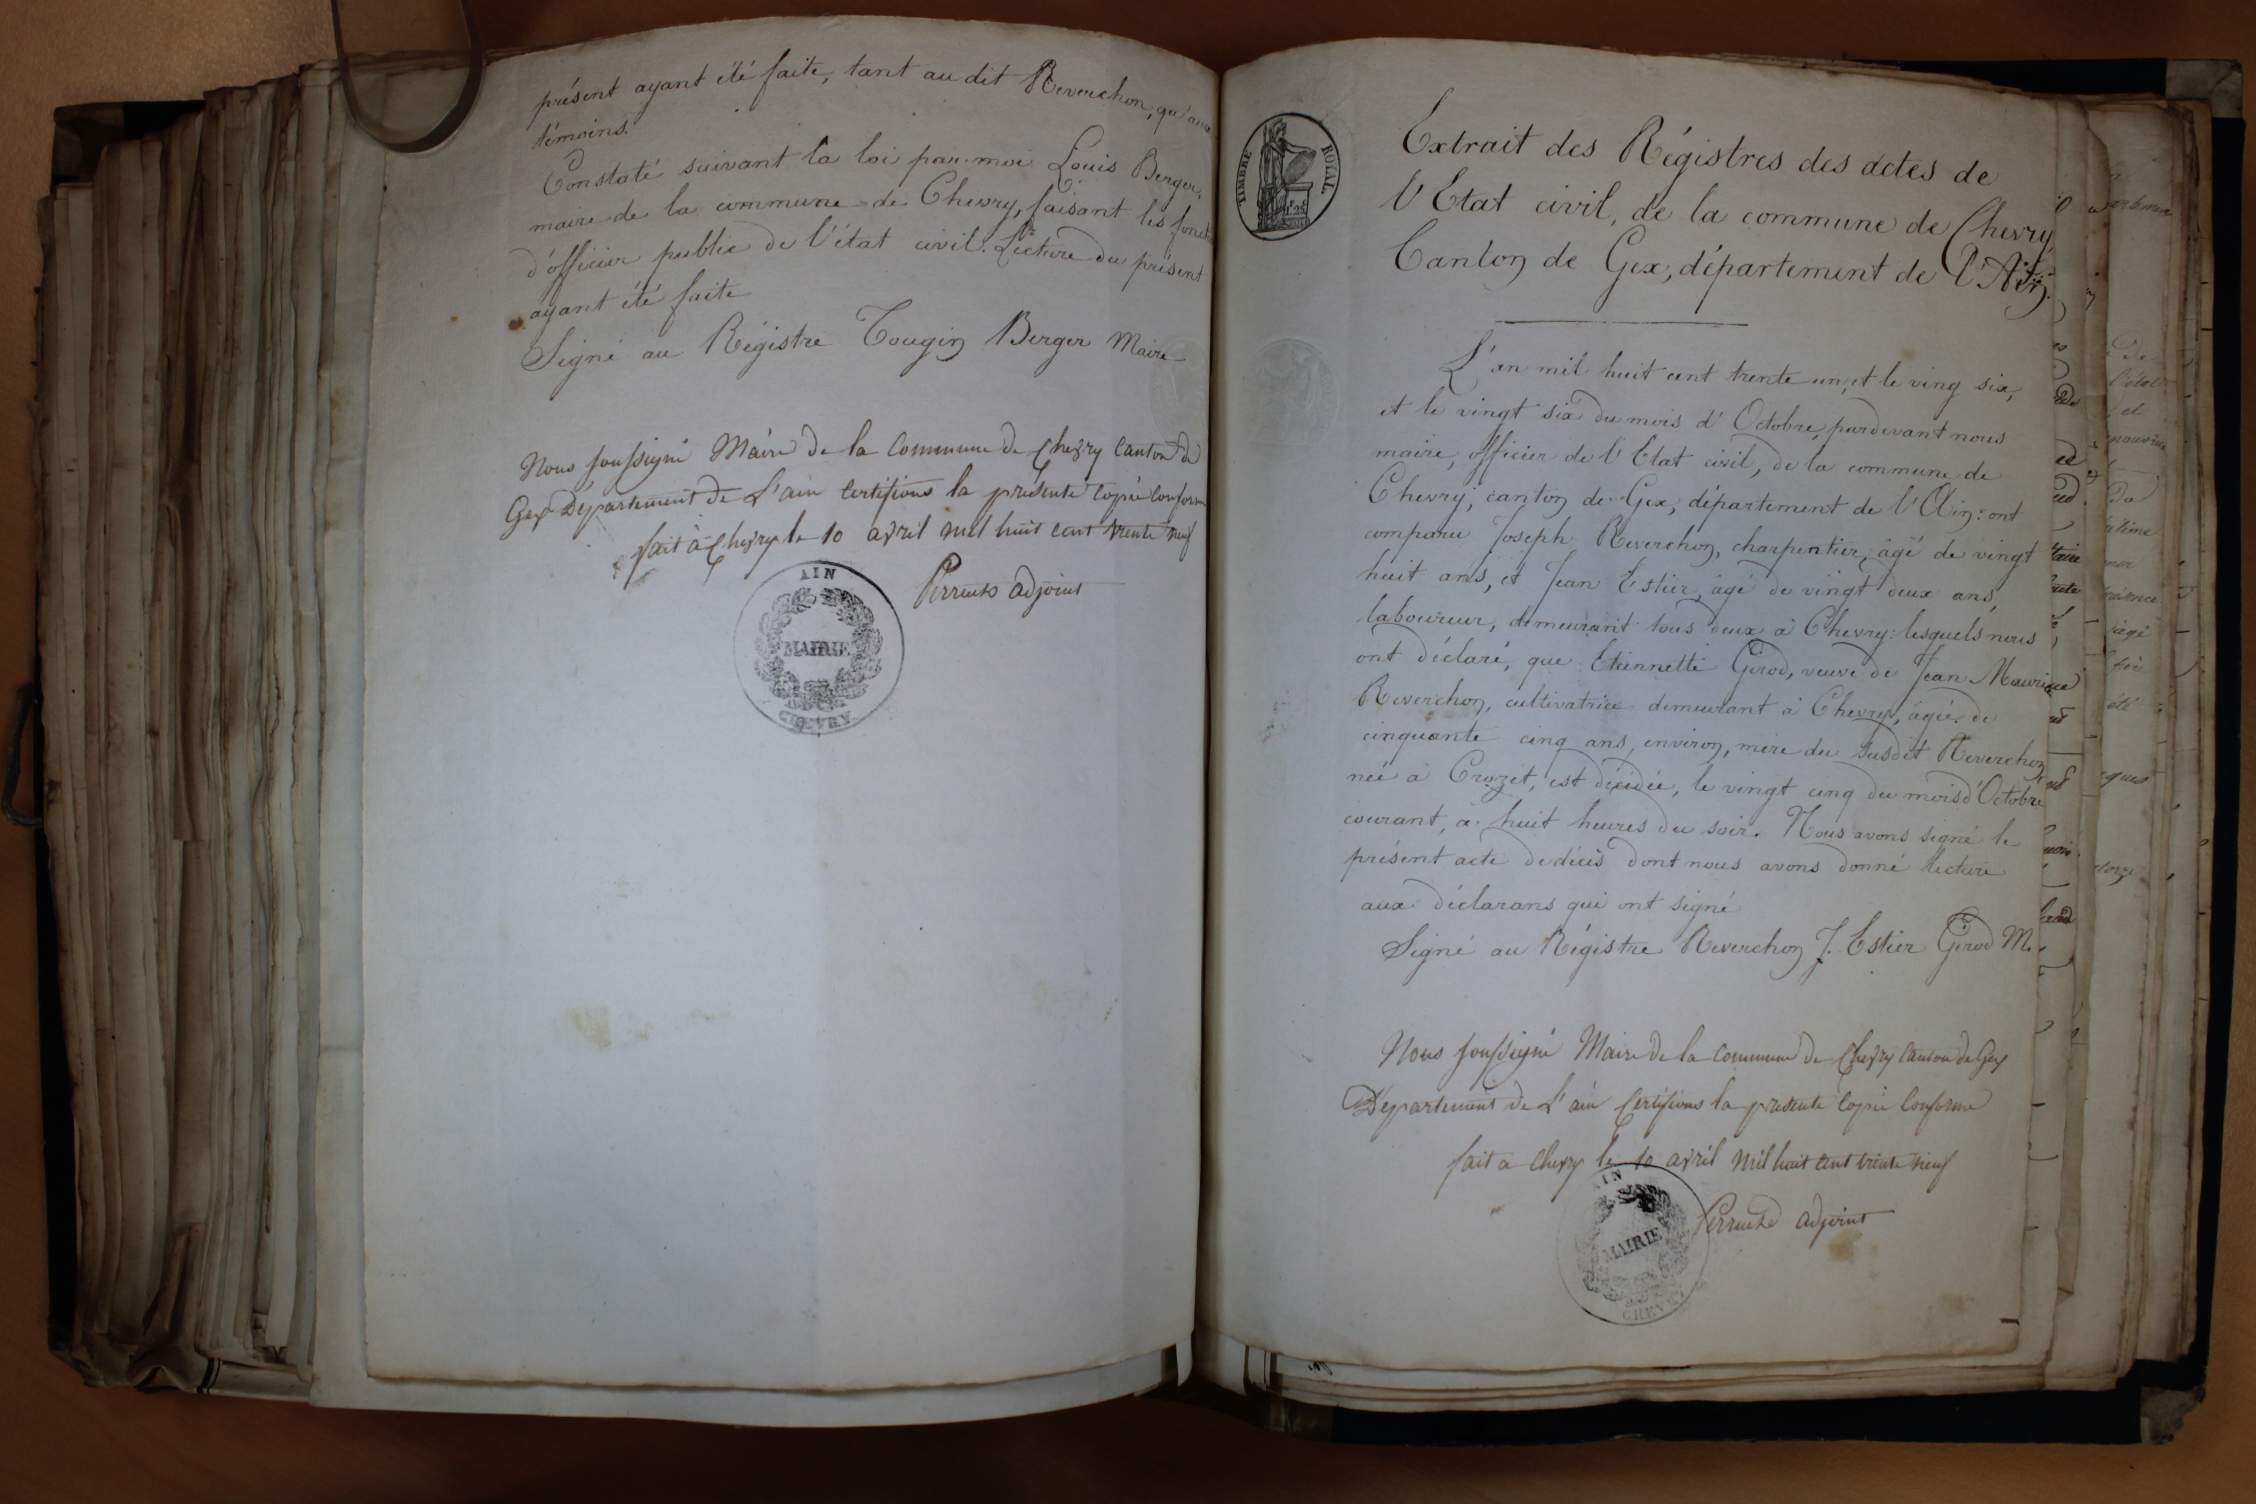 présent ayant été faite, tant au dit Reverchon, qu'aux
témoins.
Constaté suivant la loi par moi Louis Berger,
maire de la commune de Chevry, faisant les fonct
d'officier public de l'état civil. Lecture du présent
ayant été faite
Signé au Régistre Tougin Berger Maire
Nous soussigné Maire de la Commune de Chevry Canton de
Gex Département de L'ain Certifions la présente Copie Conforme
fait à Chevry le 10 avril mil huit cent trente neuf
adjoint
AIN
MAIRIE
CHEVRY
TIMBRE ROYAL
Extrait des Régistres des actes de
l'Etat civil, de la commune de Chevry
Canton de Gex, département de l'Ain.
L'an mil huit cent trente un, et le ving six,
et le vingt six du mois d'Octobre, pardevant nous
maire, officier de l'Etat civil, de la commune de
Chevry; canton de Gex; département de l'Ain: ont
comparu Joseph Reverchon, charpentier, âgé de vingt
huit ans, et Jean Estier, âgé de vingt deux ans,
laboureur, demeurant tous deux à Chevry: lesquels nous
ont déclaré, que Etiennette Girod, veuve de Jean Maurice
Reverchon, cultivatrice demeurant à Chevry, âgée de
cinquante cinq ans, environ, mère du susdit Reverchon,
née à Crozet, est décédée, le vingt cinq du mois d'Octobre
courant, à huit heures du soir. Nous avons signé le
présent acte de décès dont nous avons donné lecture
aux déclarans qui ont signé
Signé au Régistre Reverchon J. Estier Girod M.
Nous soussigné Maire de la Commune de Chevry Canton de Gex
Département de L'ain Certifions la présente Copie Conforme
fait à Chevry le 10 avril mil huit cent trente neuf
adjoint
AIN
MAIRIE
CHEVRY